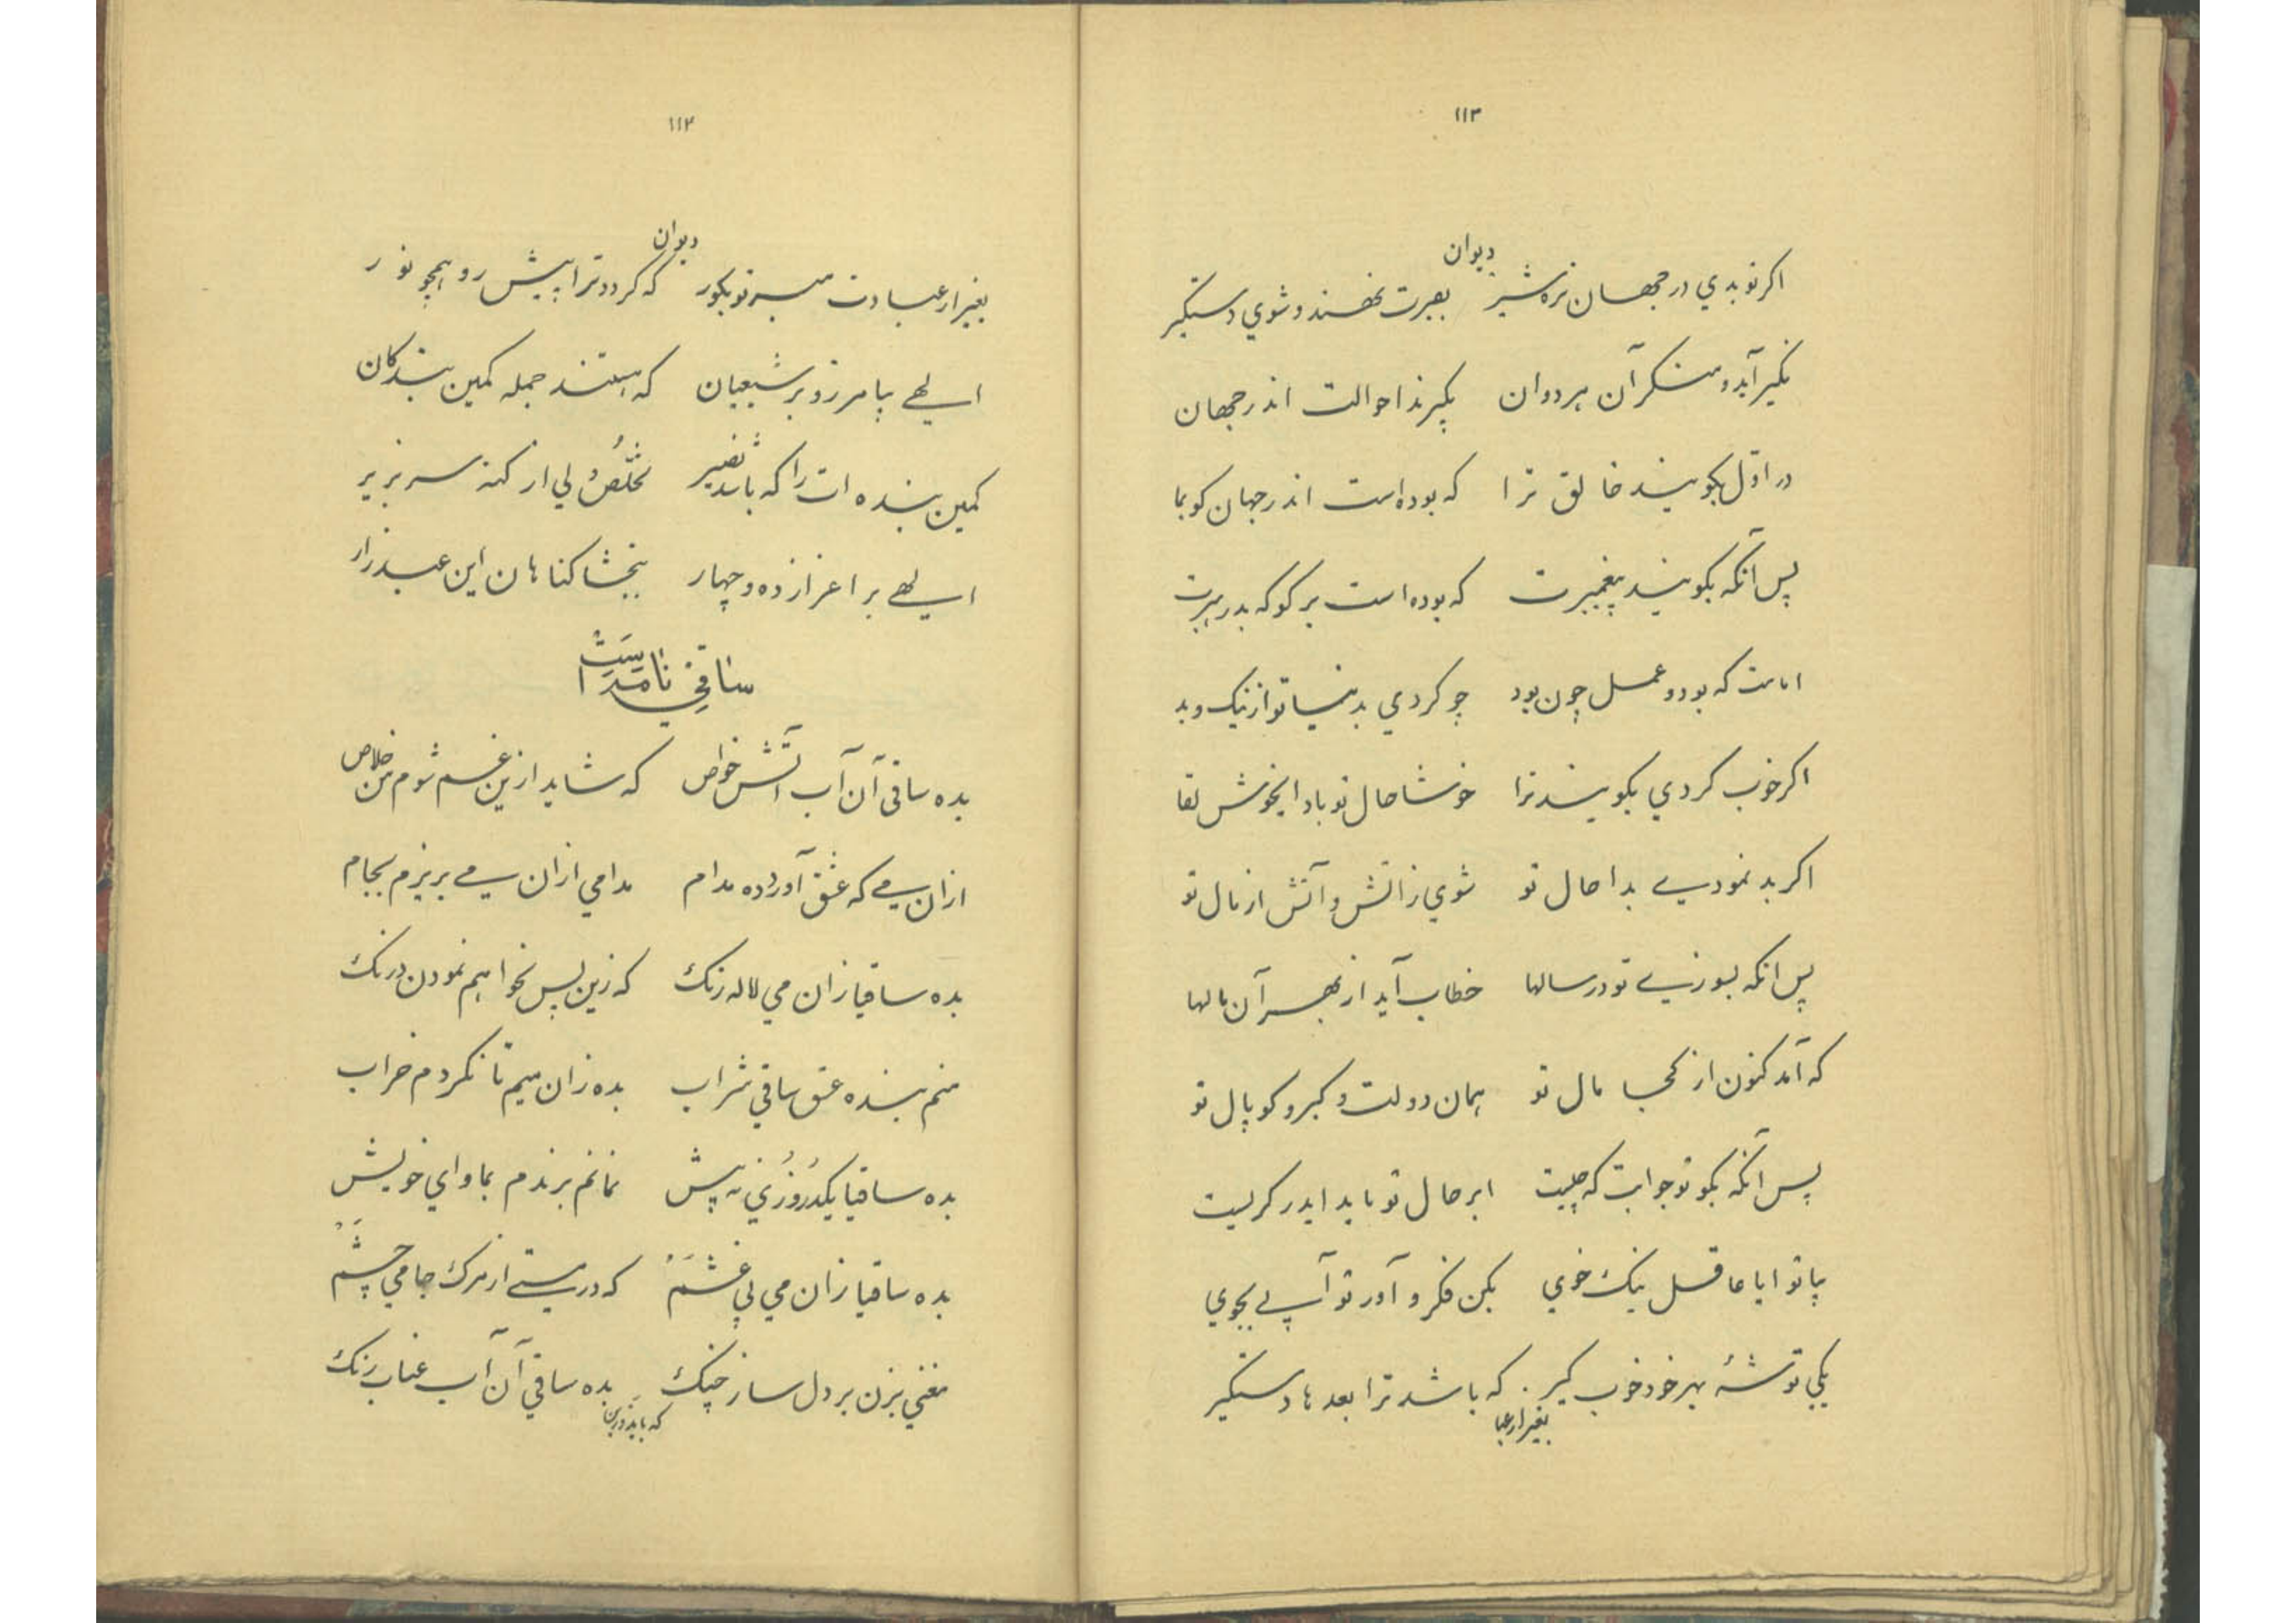 ۱۱۳
دیوان
اکر تو بدي در جهان نره شیر بقبرت نهند و شوي دستکیر
نکیر آید و منکر آن هر دوان بکیرند احوالت اندر جهان
در اوّل بکویند خالق ترا که بوده است اندر جهان کو بما
پس آنکه بکویند پیغمبرت که بوده است بر کو که بد رهبرت
امامت که بود و عمل چون بود چو کردي بدنیا تو از نیک و بد
اکر خوب کردي بکویند ترا خوشا حال تو باد ایخوش لقا
اکر بد نمودی بدا حال تو شوي ز اتش و آتش از مال تو
پس انکه بسوزی تو در سالها خطاب آید از بهر آن مالها
که آمد کنون از کجا مال تو همان دولت و کبر و کوپال تو
پس آنکه بکو تو جوابت که چیست ابر حال تو باید ایدر کریست
بیا تو ایا عاقل نیک خوي بکن فکر و آور تو آبی بجوي
یکي توشهٔ بهر خود خوب کیر که باشد ترا بعدها دستکیر
بغیر از عبا
۱۱۲
دیوان
بغیر از عبادت مبر تو بکور که کردد ترا پیش رو همچو نور
الهی بیامرز و بر شیعیان که هستند جمله کمین بندکان
کمین بنده ات را که باشد نصیر تخلّص ولي از کنه سر بزیر
الهی براعزاز ده و چهار ببخشا کناهان این عبد زار
ساقي نامه است
بده ساقی آن آب آتش خواص که شاید ازین غم شوم من خلاص
ازان می که عشق آورده مدام مدامي ازان می بریزم بجام
بده ساقیا زان مي لاله رنک که زین پس نخواهم نمودن درنک
منم بنده عشق ساقي شراب بده زان میم تا نکردم خراب
بده ساقیا یکدو روزي به پیش نمانم برندم بماواي خویش
بده ساقیا زان مي بي غشم که در مستی از مرک جامي چشم
مغني بزن بر دل ساز چنک بده ساقي آن آب عناب رنک